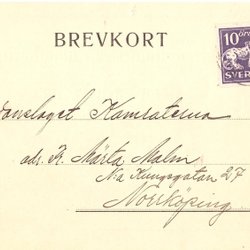 BREVKORT
10 ÖRE
SVER
danslaget Kamraterna
adr. Fr. Märta Malm
N:a Kungsgatan 27
Norrköping